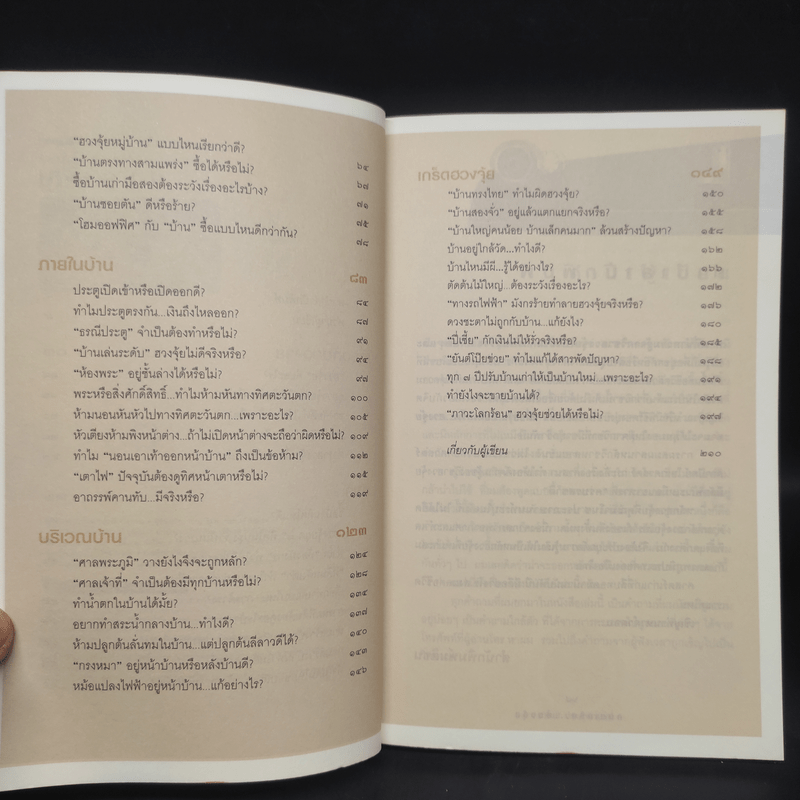 “ฮวงจุ้ยหมู่บ้าน” แบบไหนเรียกว่าดี? ๖๔
“บ้านตรงทางสามแพร่ง” ซื้อได้หรือไม่? ๖๗
ซื้อบ้านเก่ามือสองต้องระวังเรื่องอะไรบ้าง? ๗๑
“บ้านซอยตัน” ดีหรือร้าย? ๗๕
“โฮมออฟฟิศ” กับ “บ้าน” ซื้อแบบไหนดีกว่ากัน? ๗๘
ภายในบ้าน ๘๓
ประตูเปิดเข้าหรือเปิดออกดี? ๘๔
ทำไมประตูตรงกัน...เงินถึงไหลออก? ๘๗
“ธรณีประตู” จำเป็นต้องทำหรือไม่? ๙๑
“บ้านเล่นระดับ” ฮวงจุ้ยไม่ดีจริงหรือ? ๙๔
“ห้องพระ” อยู่ชั้นล่างได้หรือไม่? ๙๗
พระหรือสิ่งศักดิ์สิทธิ์...ทำไมห้ามหันทางทิศตะวันตก? ๑๐๐
ห้ามนอนหันหัวไปทางทิศตะวันตก...เพราะอะไร? ๑๐๕
หัวเตียงห้ามพิงหน้าต่าง...ถ้าไม่เปิดหน้าต่างจะถือว่าผิดหรือไม่? ๑๐๙
ทำไม “นอนเอาเท้าออกหน้าบ้าน” ถึงเป็นข้อห้าม? ๑๑๒
“เตาไฟ” ปัจจุบันต้องดูทิศหน้าเตาหรือไม่? ๑๑๕
อาถรรพ์คานทับ...มีจริงหรือ? ๑๑๙
บริเวณบ้าน ๑๒๓
“ศาลพระภูมิ” วางยังไงจึงจะถูกหลัก? ๑๒๔
“ศาลเจ้าที่” จำเป็นต้องมีทุกบ้านหรือไม่? ๑๒๘
ทำน้ำตกในบ้านได้มั้ย? ๑๓๔
อยากทำสระน้ำกลางบ้าน...ทำไงดี? ๑๓๗
ห้ามปลูกต้นลั่นทมในบ้าน...แต่ปลูกต้นลีลาวดีได้? ๑๔๐
“กรงหมา” อยู่หน้าบ้านหรือหลังบ้านดี? ๑๔๓
หม้อแปลงไฟฟ้าอยู่หน้าบ้าน...แก้อย่างไร? ๑๔๖
เกร็ดฮวงจุ้ย ๑๔๙
“บ้านทรงไทย” ทำไมผิดฮวงจุ้ย? ๑๕๐
“บ้านสองจั่ว” อยู่แล้วแตกแยกจริงหรือ? ๑๕๕
“บ้านใหญ่คนน้อย บ้านเล็กคนมาก” ล้วนสร้างปัญหา? ๑๕๘
บ้านอยู่ใกล้วัด...ทำไงดี? ๑๖๒
บ้านไหนมีผี...รู้ได้อย่างไร? ๑๖๖
ตัดต้นไม้ใหญ่...ต้องระวังเรื่องอะไร? ๑๗๒
“ทางรถไฟฟ้า” มังกรร้ายทำลายฮวงจุ้ยจริงหรือ? ๑๗๖
ดวงชะตาไม่ถูกกับบ้าน...แก้ยังไง? ๑๘๐
“ปี่เซี้ย” กักเงินไม่ให้รั่วจริงหรือ? ๑๘๕
“ยันต์โป๊ยข่วย” ทำไมแก้ได้สารพัดปัญหา? ๑๘๘
ทุก ๗ ปีปรับบ้านเก่าให้เป็นบ้านใหม่...เพราะอะไร? ๑๙๑
ทำยังไงจะขายบ้านได้? ๑๙๔
“ภาวะโลกร้อน” ฮวงจุ้ยช่วยได้หรือไม่? ๑๙๗
เกี่ยวกับผู้เขียน ๒๑๐